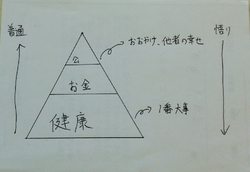 普通
悟り
おおやけ、他者の幸せ
公
お金
健康
1番大事